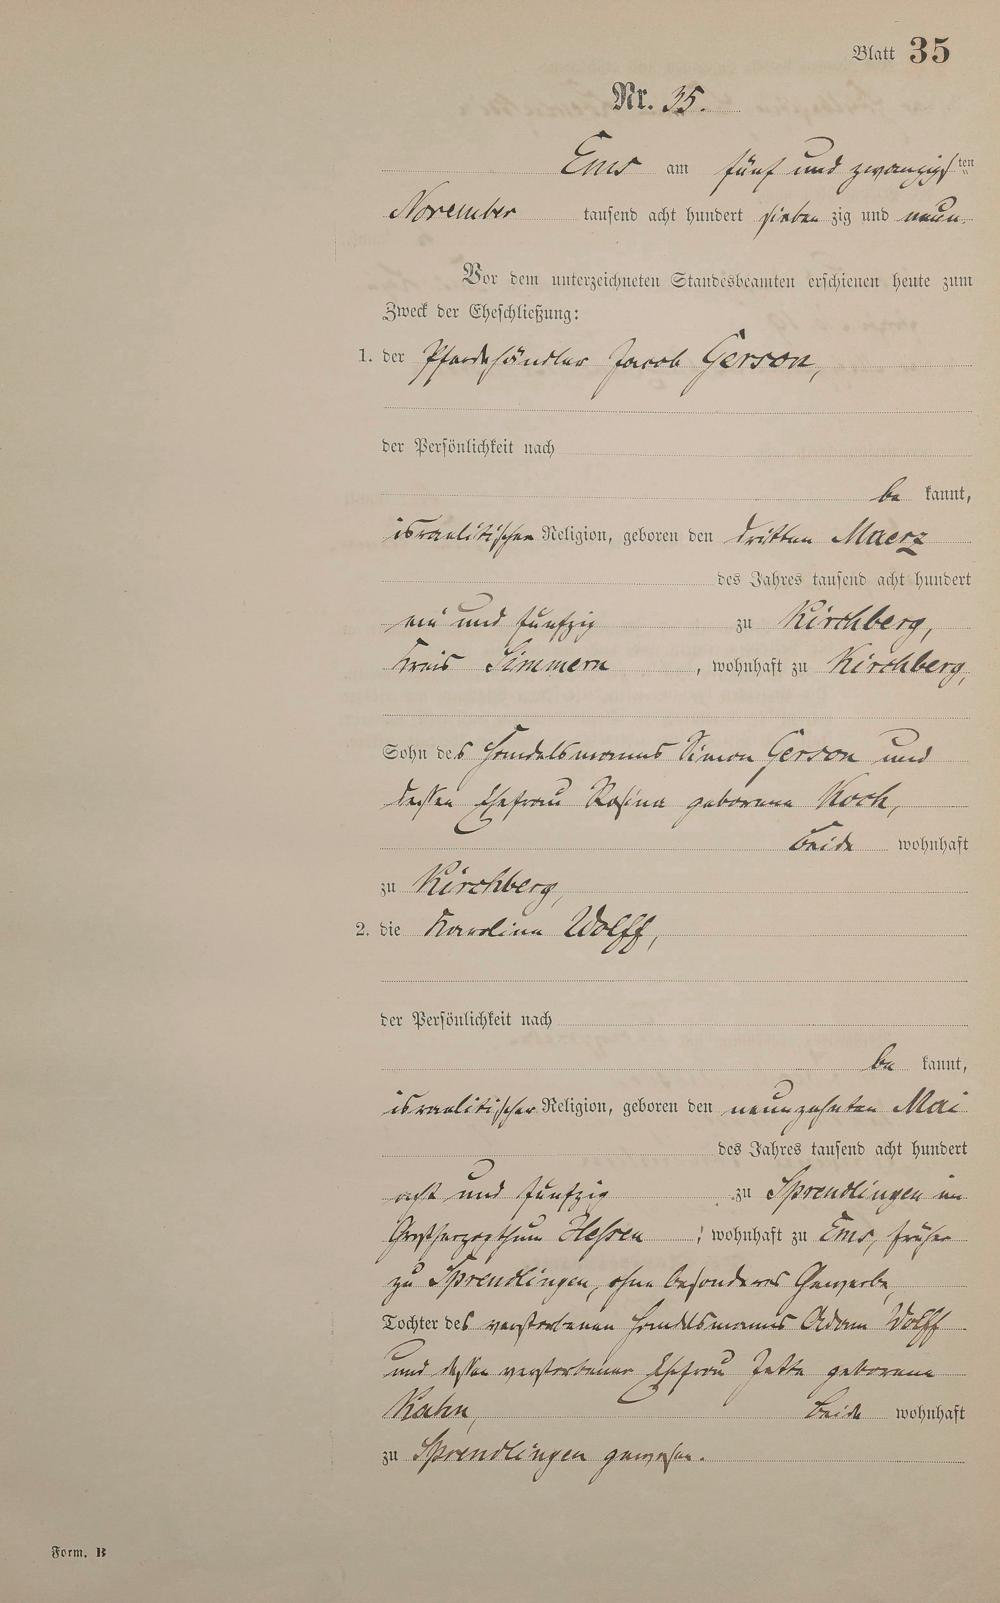 Blatt 35
Nr. 35.
Ems am fünf und zwanzigsten
November tausend acht hundert siebenzig und neun.
Vor dem unterzeichneten Standesbeamten erschienen heute zum
Zweck der Eheschließung:
1. der Pferdehändler Jacob Gerson,
der Persönlichkeit nach
bekannt,
israelitischer Religion, geboren den dritten Maerz
des Jahres tausend acht hundert
ein und fünfzig zu Kirchberg,
Kreis Simmern, wohnhaft zu Kirchberg,
Sohn des Handelsmanns Simon Gerson und
dessen Ehefrau Rosina geborene Koch,
beide wohnhaft
zu Kirchberg,
2. die Karolina Wolff,
der Persönlichkeit nach
bekannt,
israelitischer Religion, geboren den neunzehnten Mai
des Jahres tausend acht hundert
acht und fünfzig zu Sprendlingen im
Großherzogthum Hessen, wohnhaft zu Ems, früher
zu Sprendlingen, ohne besonderes Gewerbe,
Tochter des verstorbenen Handelsmanns Adam Wolff
und dessen verstorbener Ehefrau Jette geborene
Kahn, beide wohnhaft
zu Sprendlingen gewesen.
Form. B